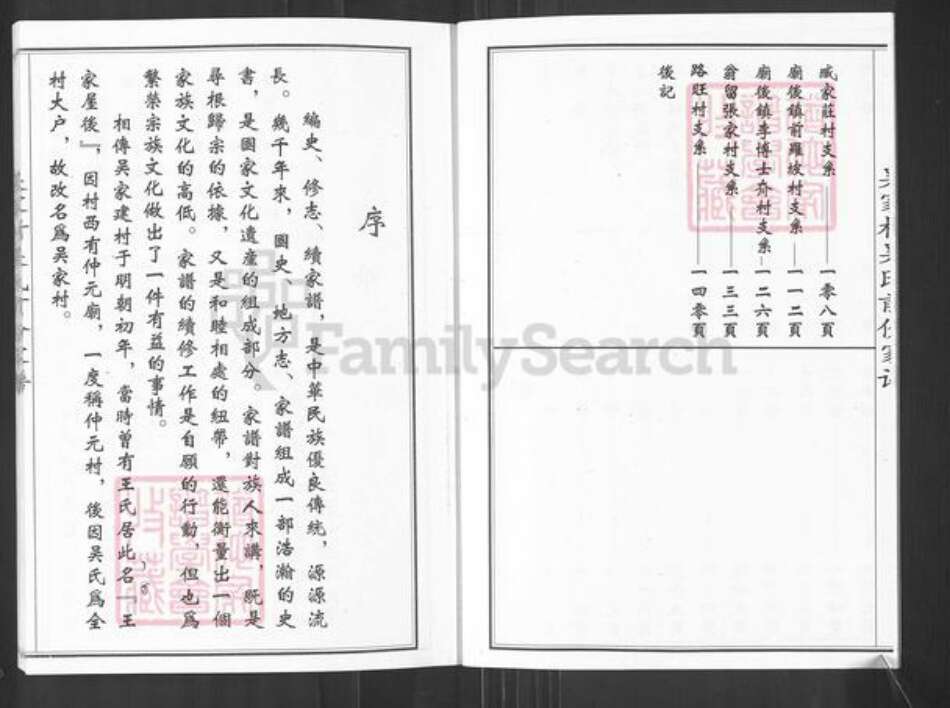 戚家莊村支系——一零八頁
廟後鎮前羅坡村支系——一一二頁
廟後鎮李博士夼村支系——一二六頁
俞留張家村支系——一三三頁
路旺村支系——一四零頁
後記
序
編史、修志、續家譜，是中華民族優良傳統，源源流
長。幾千年來，國史、地方志、家譜組成一部浩瀚的史
書，是國家文化遺產的組成部分。家譜對族人來講，既是
尋根歸宗的依據，又是和睦相處的紐帶，還能衡量出一個
家族文化的高低。家譜的續修工作是自願的行動，但也爲
繁榮宗族文化做出了一件有益的事情。
相傳吳家建村于明朝初年，當時曾有王氏居此名『王
家屋後』，因村西有仲元廟，一度稱仲元村，後因吳氏爲全
村大户，故改名爲吳家村。
FamilySearch